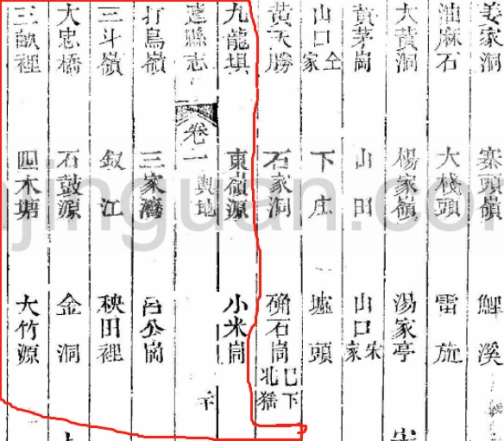 姜家洞 寨頭嶺 鯉溪
油麻石 大棧頭 雷
大黃洞 楊家嶺 湯家亭
黃茅崗 山田 山口宋家
山口仝家 下庄 墟頭
黃天勝 石家洞 石崗 已下北
九龍塤 東嶺源 小米崗
縣志 卷一 輿地
打鳥嶺 三家灣 呂公崗
三斗嶺 釵江 秧田裡
大忠橋 石鼓源 金洞
三畝裡 四木塘 大竹源
jinguan.com